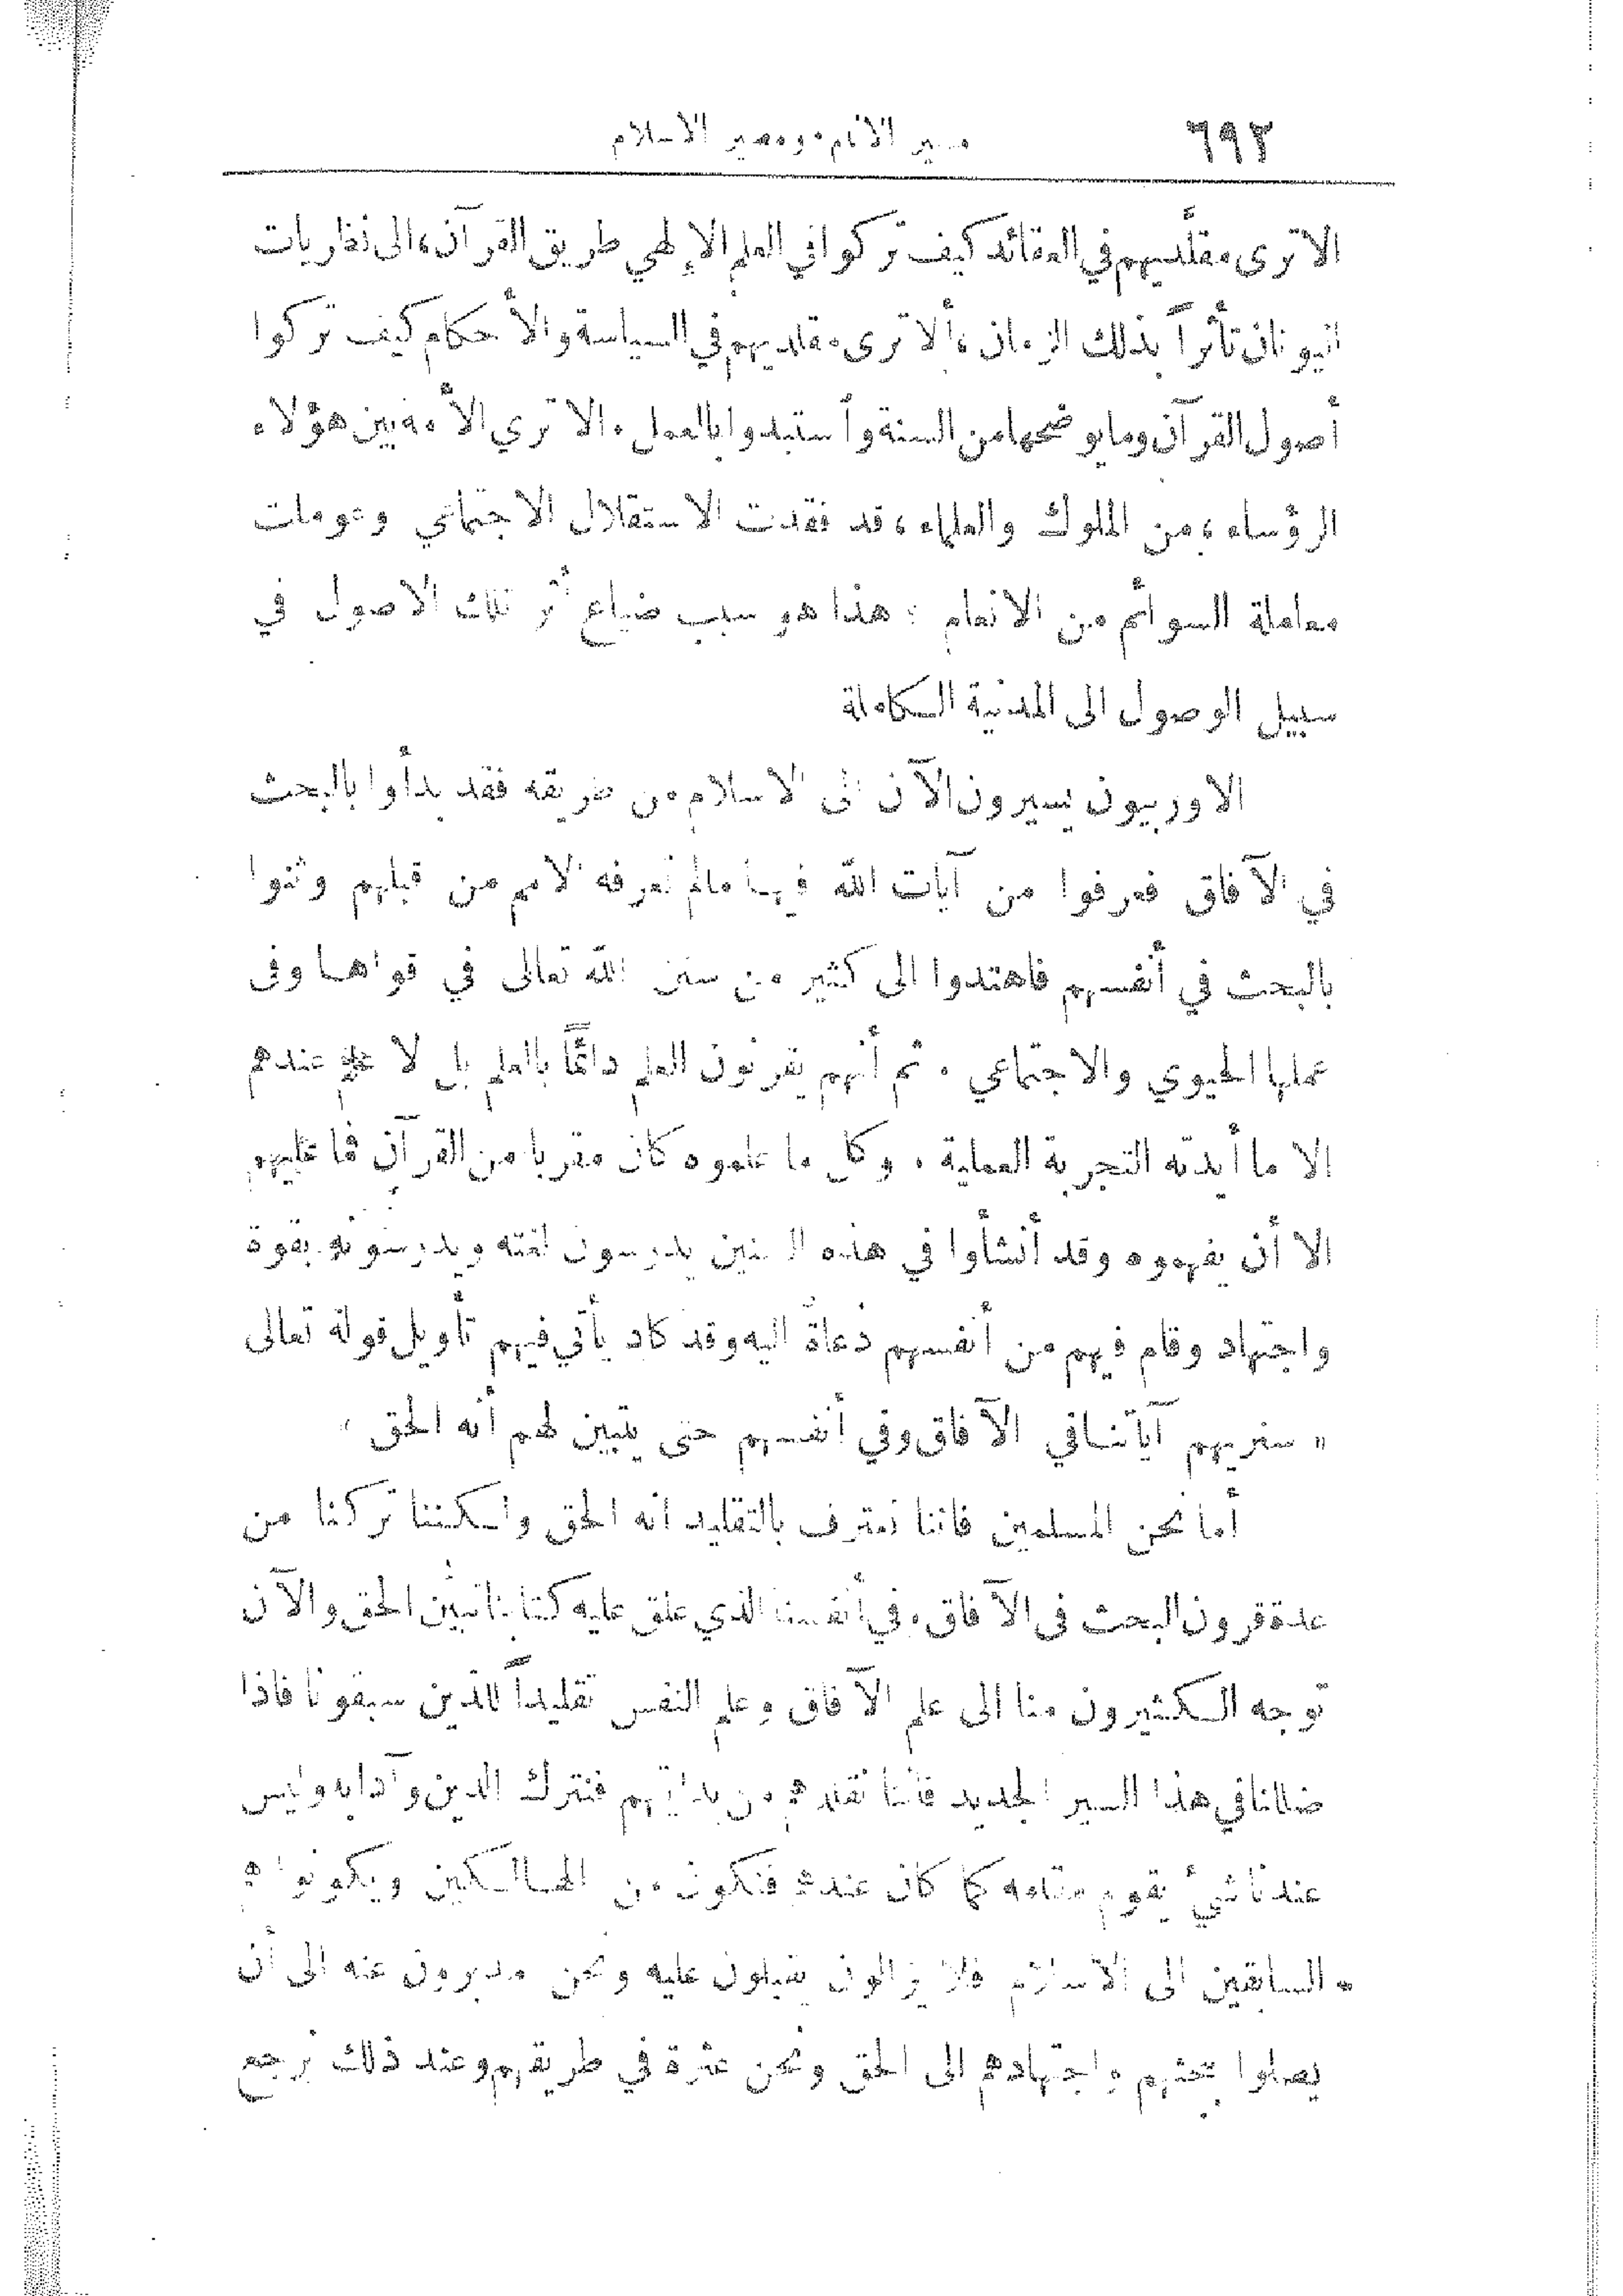 ٦٩٢
مسير الانام ومصير الاسلام
الا ترى مقلَّديهم في العقائد كيف تركوا في العلم الإلهي طريق القرآن، الى نظاريات
اليونان تأثراً بذلك الزمان، ألا ترى مقلديهم في السياسة والأحكام كيف تركوا
أصول القرآن وما يوضحها من السنة وأستبدوا بالعمل. الا تري الأمة بين هؤلاء
الرؤساء، من الملوك والعلماء، قد فقدت الاستقلال الاجتماعي وعوملت
معاملة السوائم من الانعام : هذا هو سبب ضياع أثر تلك الاصول في
سبيل الوصول الى المدنية الكاملة
الاوربيون يسيرون الآن الى الاسلام من طريقه فقد بدأوا بالبحث
في الآفاق فعرفوا من آيات الله فيها مالم تعرفه الامم من قبلهم وثنوا
بالبحث في أنفسهم فاهتدوا الى كثير من سنن الله تعالى في قواها وفى
عملها الحيوي والاجتماعي . ثم أنهم يقرنون العلم دائمًا بالعلم بل لا علم عندهم
الا ما أيدته التجربة العملية . وكل ما علموه كان مقربا من القرآن فما عليهم
الا أن يفهموه وقد أنشأوا في هذه السنين يدرسون لغته ويدرسونه بقوة
واجتهاد وقام فيهم من أنفسهم دعاةٌ اليه وقد كاد يأتي فيهم تأويل قوله تعالى
« سنريهم آياتنا في الآفاق وفي أنفسهم حتى يتبين لهم أنه الحق »
أما نحن المسلمين فاننا نعترف بالتقليد انه الحق ولكننا تركنا من
عدة قرون البحث فى الآفاق وفي أنفسنا الذي علق عليه كتابنا تبيّن الحق والآن
توجه الكثيرون منا الى علم الآفاق وعلم النفس تقليداً للذين سبقونا فاذا
ضللنا في هذا السير الجديد فاننا نقلدهم من بدايتهم فنترك الدين وآدابه وليس
عندنا شيءٌ يقوم مقامه كما كان عندهم فنكون من الهالكين ويكونوا هم
السابقين الى الاسلام فلا يزالون يقبلون عليه ونحن مدبرون عنه الى أن
يصلوا ببحثهم واجتهادهم الى الحق ونحن عثرة في طريقهم وعند ذلك يرجع